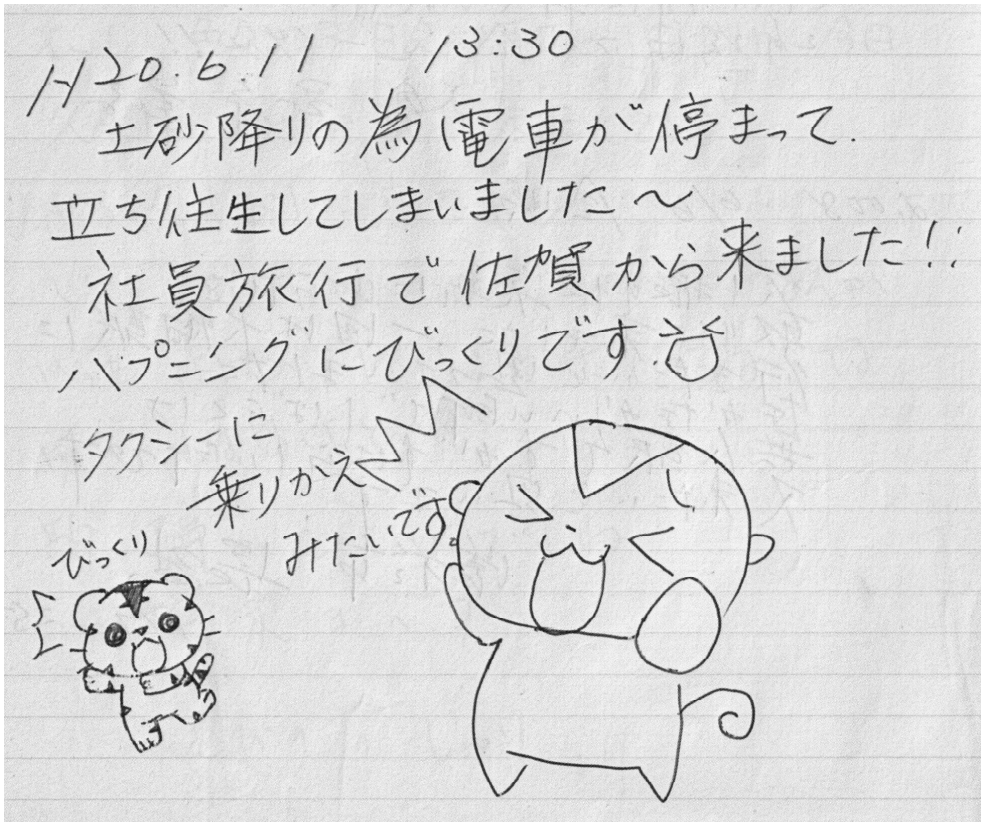 H20.6.11 13:30
土砂降りの為電車が停まって.
立ち往生してしまいました～
社員旅行で佐賀から来ました!!
ハプニングにびっくりです.
タクシーに
乗りかえ
みたいです。
びっくり